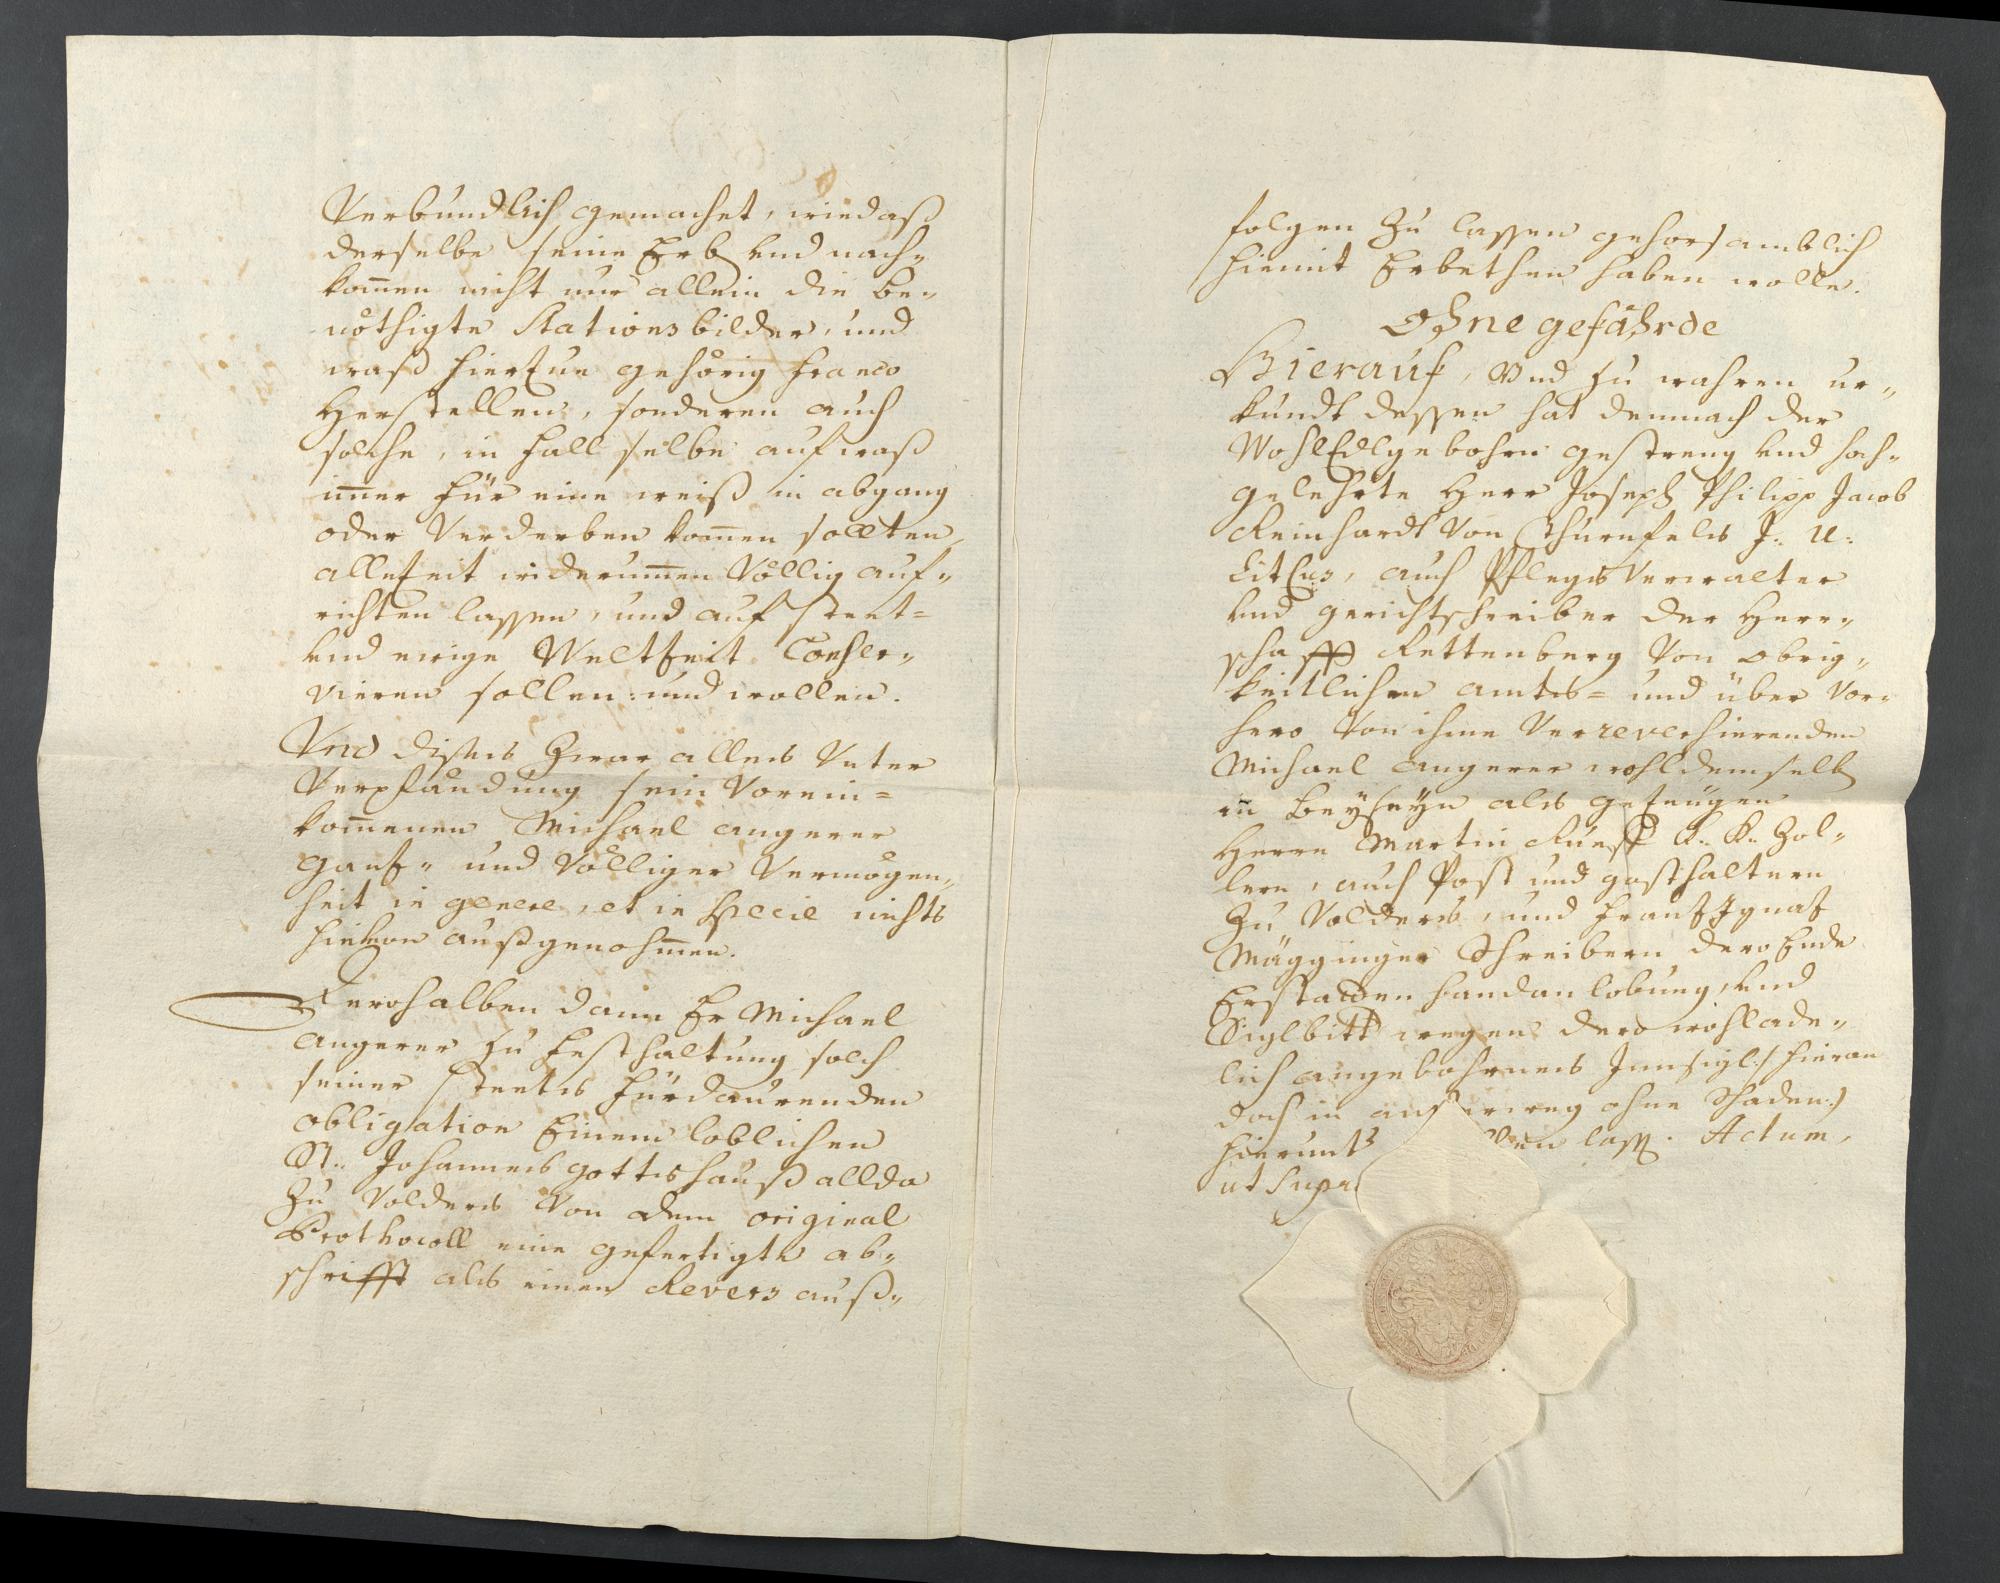 Verbundlich gemachet, wiedaß
derselbe seine Erb und nach„
kom̄en nicht nur allein die be„
nöthigte Stationsbilder, und
waß hierzue gehörig franco
Herstellen, sonderen auch
solche, in fall selbe auf waß
im̄er für eine weiß in abgang
oder Verderben kom̄en sollten,
allezeit widerum̄en Völlig auf„
richten lassen, und auf steet=
und ewige Weltzeit Conser„
vieren sollen: und wollen.
Vnd dises Zwar alles Vnter
Verpfändung sein Vorein=
kom̄enen Michael angerer
ganz„ und Völliger Vermögen„
heit in genere, et in specie nichts
hieuon außgenohm̄en.
Derohalben dann Er Michael
angerer zu festhaltung solch
seiner steets fürdaurenden
obligation Einem loblichen
St: Johannes gottshauß allda
Zu Volders Von dem original
Prothocoll eine gefertigte ab„
schrifft als einen Revers auß„
folgen Zu lassen gehorsamblich
hiemit Erbethen haben wolle.
Ohne gefährde
Hierauf, Vnd zu wahren ur„
kundt dessen hat demnach der
WohlEdlgebohrn gestreng und hoch„
gelehrte Herr Joseph Philipp Jacob
Reinhardt Von Thurnfels J: U:
Litus, auch Pflegs Verwalter
und gerichtschreiber der Herr„
schafft Rettenberg Von obrig„
keitlichen amts= und über Vor„
hero Von ihme Verreversierenden
Michael angerer wohldemselb
in beyseyn als gezeugen
Herrn Martin Ruess K: K: Zol„
lern, auch Post und gasthaltern
Zu Volders, und franz Ignaz
Mägginger Schreibern dero Ende
Erstatten handanlobung, und
Siglbitt wegen dero wohlade„
lich angebohrnes Innsigl :/ hieran
doch in ohne Schaden :/
hierunt lass. Actum,
ut Supra